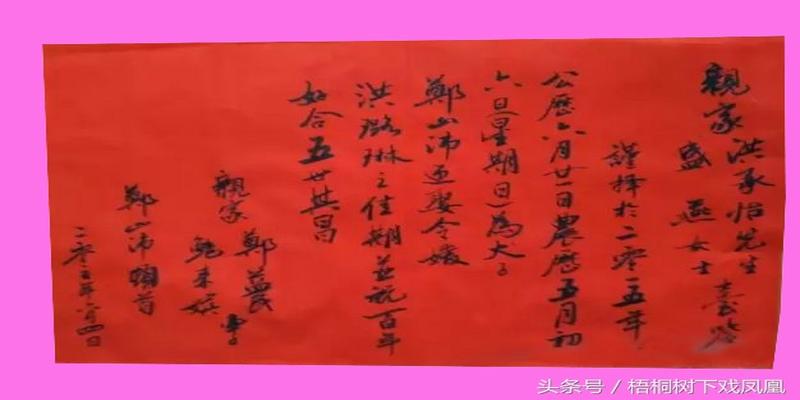 親家洪承怡先生
盛燕女士
臺鉴
謹择於二零一五年
公歷六月廿一日農歷五月初
六日(星期日)為犬子
鄭山沛迎娶令嫒
洪璐琳之佳期並祝百年
好合五世其昌
親家鄭益民
鄭山沛頓首
二零一五年六月四日
头条号 / 梧桐树下戏凤凰